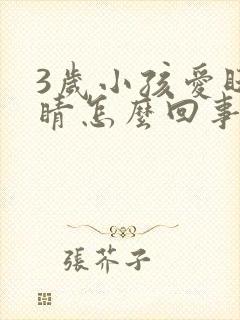 3歲小孩愛
睛怎麼回事
張芥子